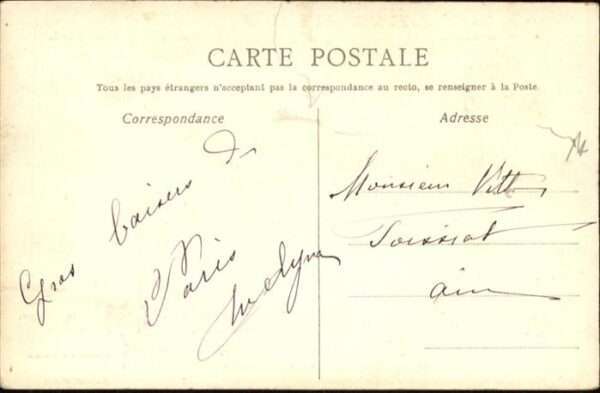 CARTE POSTALE
Tous les pays étrangers n'acceptant pas la correspondance au recto, se renseigner à la Poste.
Correspondance
Adresse
Gros baisers de
Paris
Evelyne
Monsieur
Ain